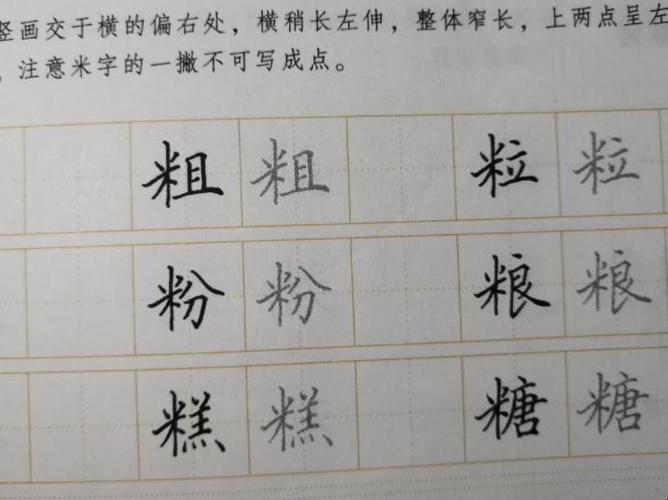 竖画交于横的偏右处，横稍长左伸，整体窄长，上两点呈左
，注意米字的一撇不可写成点。
粗 粗 粒 粒
粉 粉 粮 粮
糕 糕 糖 糖